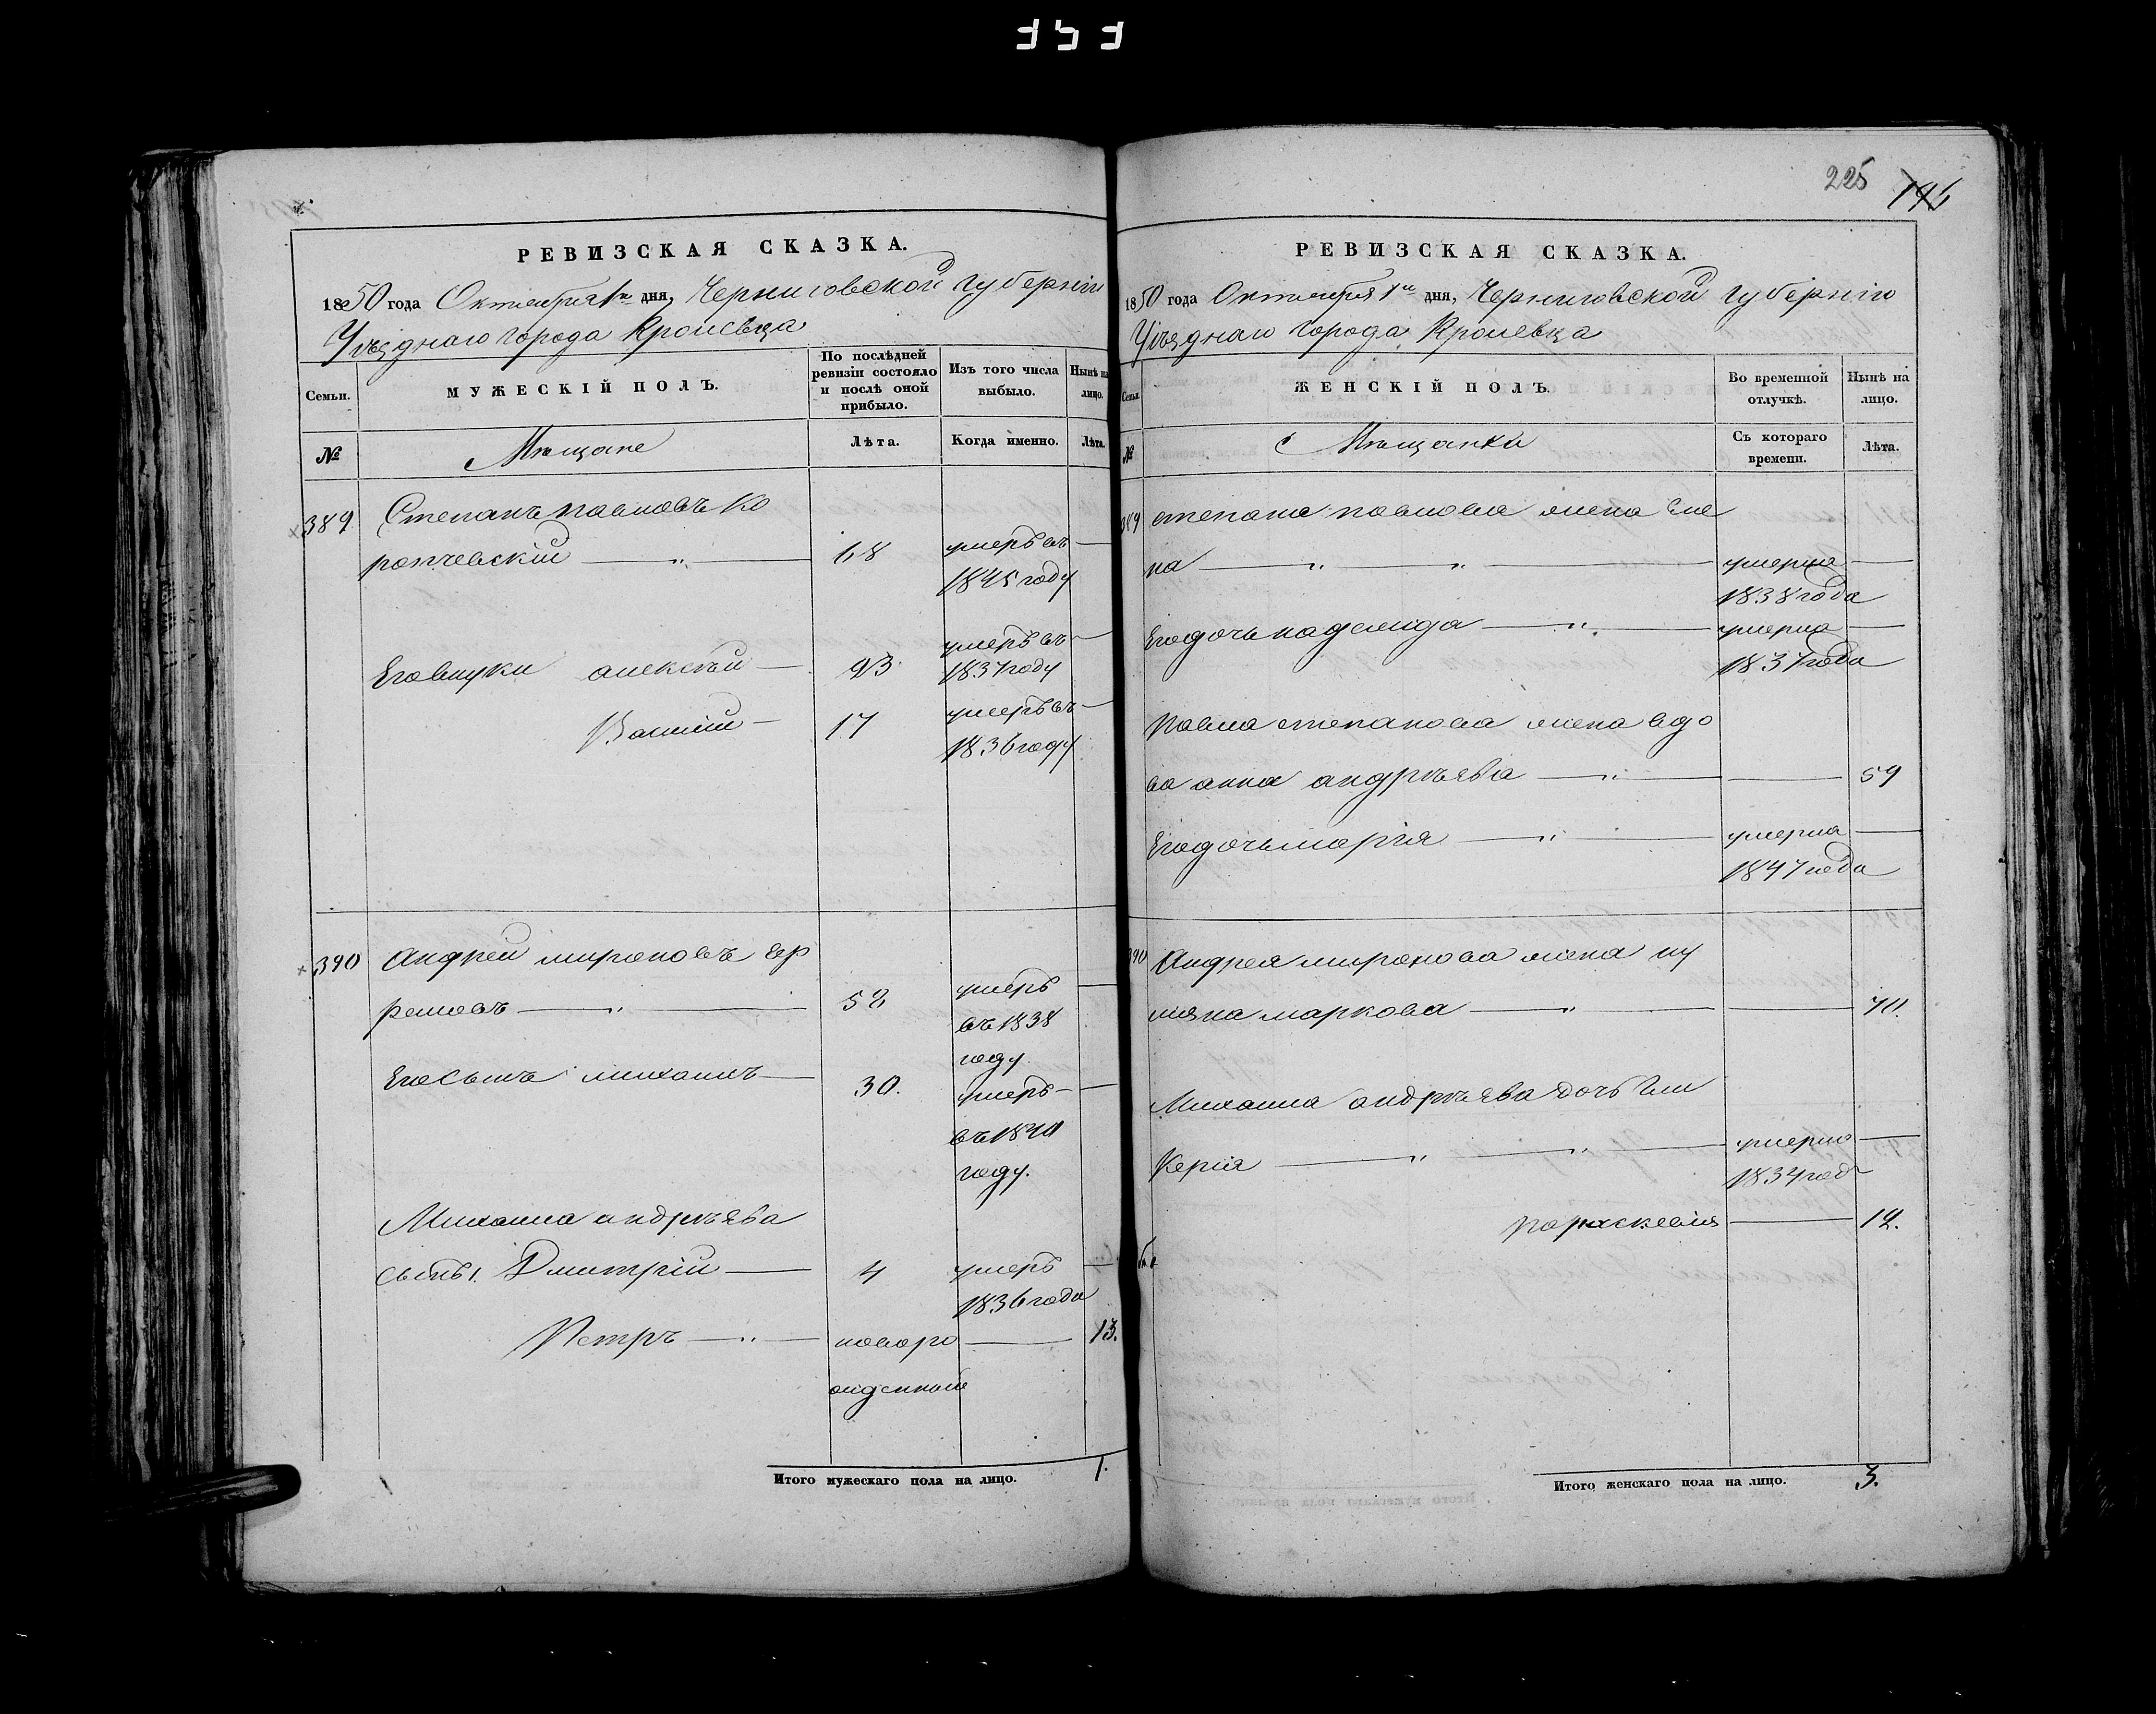 353
РЕВИЗСКАЯ СКАЗКА.
1850 года Октября 1го дня, Черниговской Губерніи
Уѣзднаго города Кролевца
Семьи.
МУЖЕСКІЙ ПОЛЪ.
По послѣдней ревизіи состояло и послѣ оной прибыло.
Изъ того числа выбыло.
Нынѣ на лицо.
№
Мѣщане
Лѣта.
Когда именно.
Лѣта.
389 Степанъ павловъ Ко
ропчевскій — „ — 68 умеръ въ —
1845 году
Его внуки алексѣй — 23 умеръ въ —
1837 году
Василій — 17 умеръ въ —
1836 году
390 Андрей мироновъ
— „ — 52 умеръ —
въ 1838
году
Его Сынъ михаилъ — 30. умеръ —
въ 1840
году.
Михаила андрѣева
Сынъ 1. Дмитрій — 4 умеръ —
1836 года
Петръ — „ — новоро — 13.
жденный
Итого мужескаго пола на лицо. 1.
225
146
РЕВИЗСКАЯ СКАЗКА.
1850 года Октября 1го дня, Черниговской Губерніи
Уѣзднаго города Кролевца
Семьи.
ЖЕНСКІЙ ПОЛЪ.
Во временной отлучкѣ.
Нынѣ на лицо.
№
Мѣщанки
Съ котораго времени.
Лѣта.
389 степана павлова жена еле
на — „ — „ — умерла —
1838 года
Его дочь надежда — „ — умерла —
1837 года
Павла степанова жена вдо
ва анна андрѣева — „ — — 59
Его дочь марія — „ — умерла —
1847 года
390 Андрея миронова жена иу
лияна маркова — „ — — 70.
Михаила андрѣева дочь Гли
керія — „ — „ — умерла —
1834 год
параскевия — 12.
Итого женскаго пола на лицо. 3.